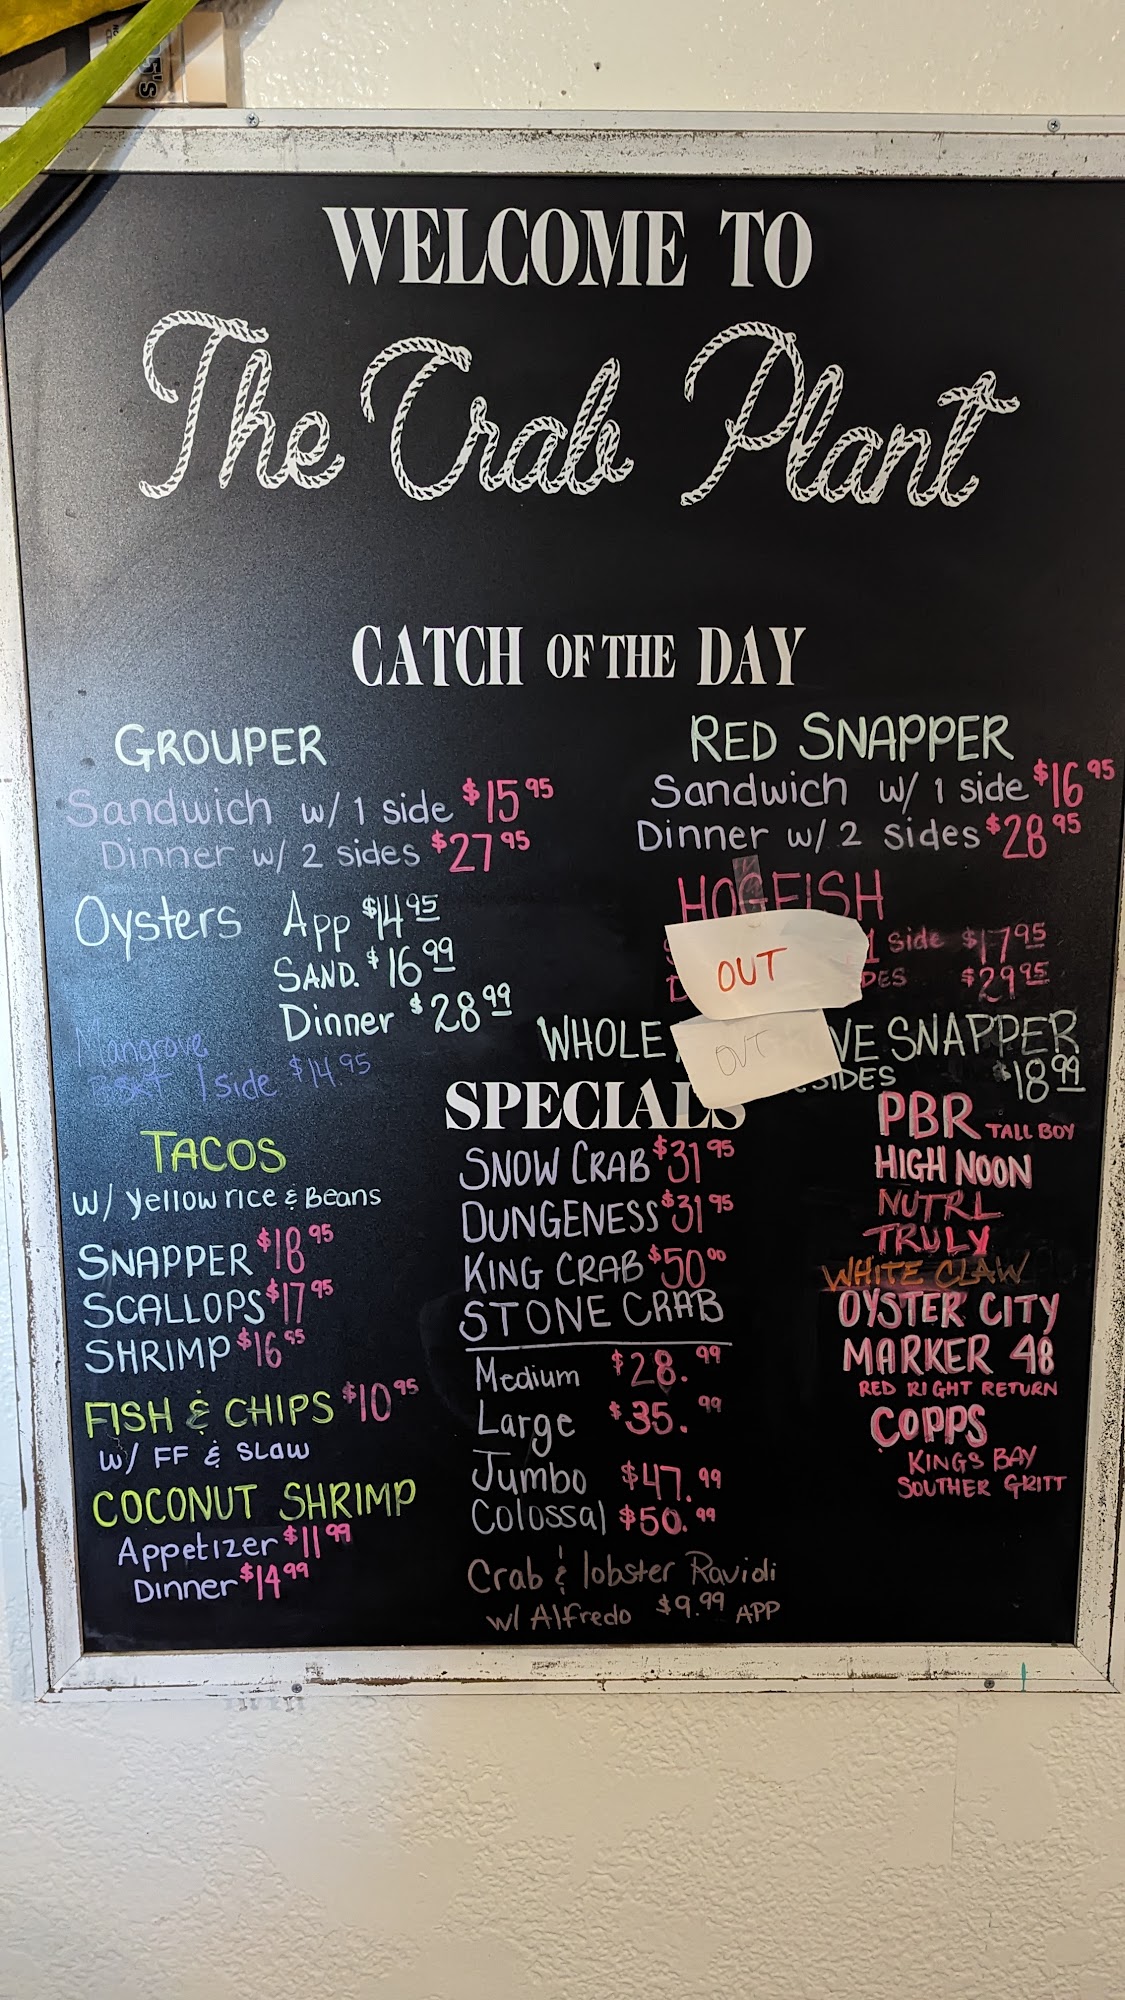 WELCOME TO
The Crab Plant
CATCH OF THE DAY
GROUPER
Sandwich w/ 1 side $15.95
Dinner w/ 2 sides $27.95
Oysters App $14.95
SAND. $16.99
Dinner $28.99
Mangrove
BSKT 1 side $14.95
RED SNAPPER
Sandwich w/ 1 side $16.95
Dinner w/ 2 sides $28.95
HOGFISH
OUT
1 side $17.95
$29.95
WHOLE SNAPPER
OUT
SIDES $18.99
TACOS
w/ Yellow rice & Beans
SNAPPER $18.95
SCALLOPS $17.95
SHRIMP $16.95
FISH & CHIPS $10.95
w/ FF & SLAW
COCONUT SHRIMP
Appetizer $11.99
Dinner $14.99
SPECIALS
SNOW CRAB $31.95
DUNGENESS $31.95
KING CRAB $50.00
STONE CRAB
Medium $28.99
Large $35.99
Jumbo $47.99
Colossal $50.99
Crab & lobster Ravioli
w/ Alfredo $9.99 APP
PBR TALL BOY
HIGH NOON
NUTRL
TRULY
WHITE CLAW
OYSTER CITY
MARKER 48
RED RIGHT RETURN
COPPS
KINGS BAY
SOUTHER GRITT